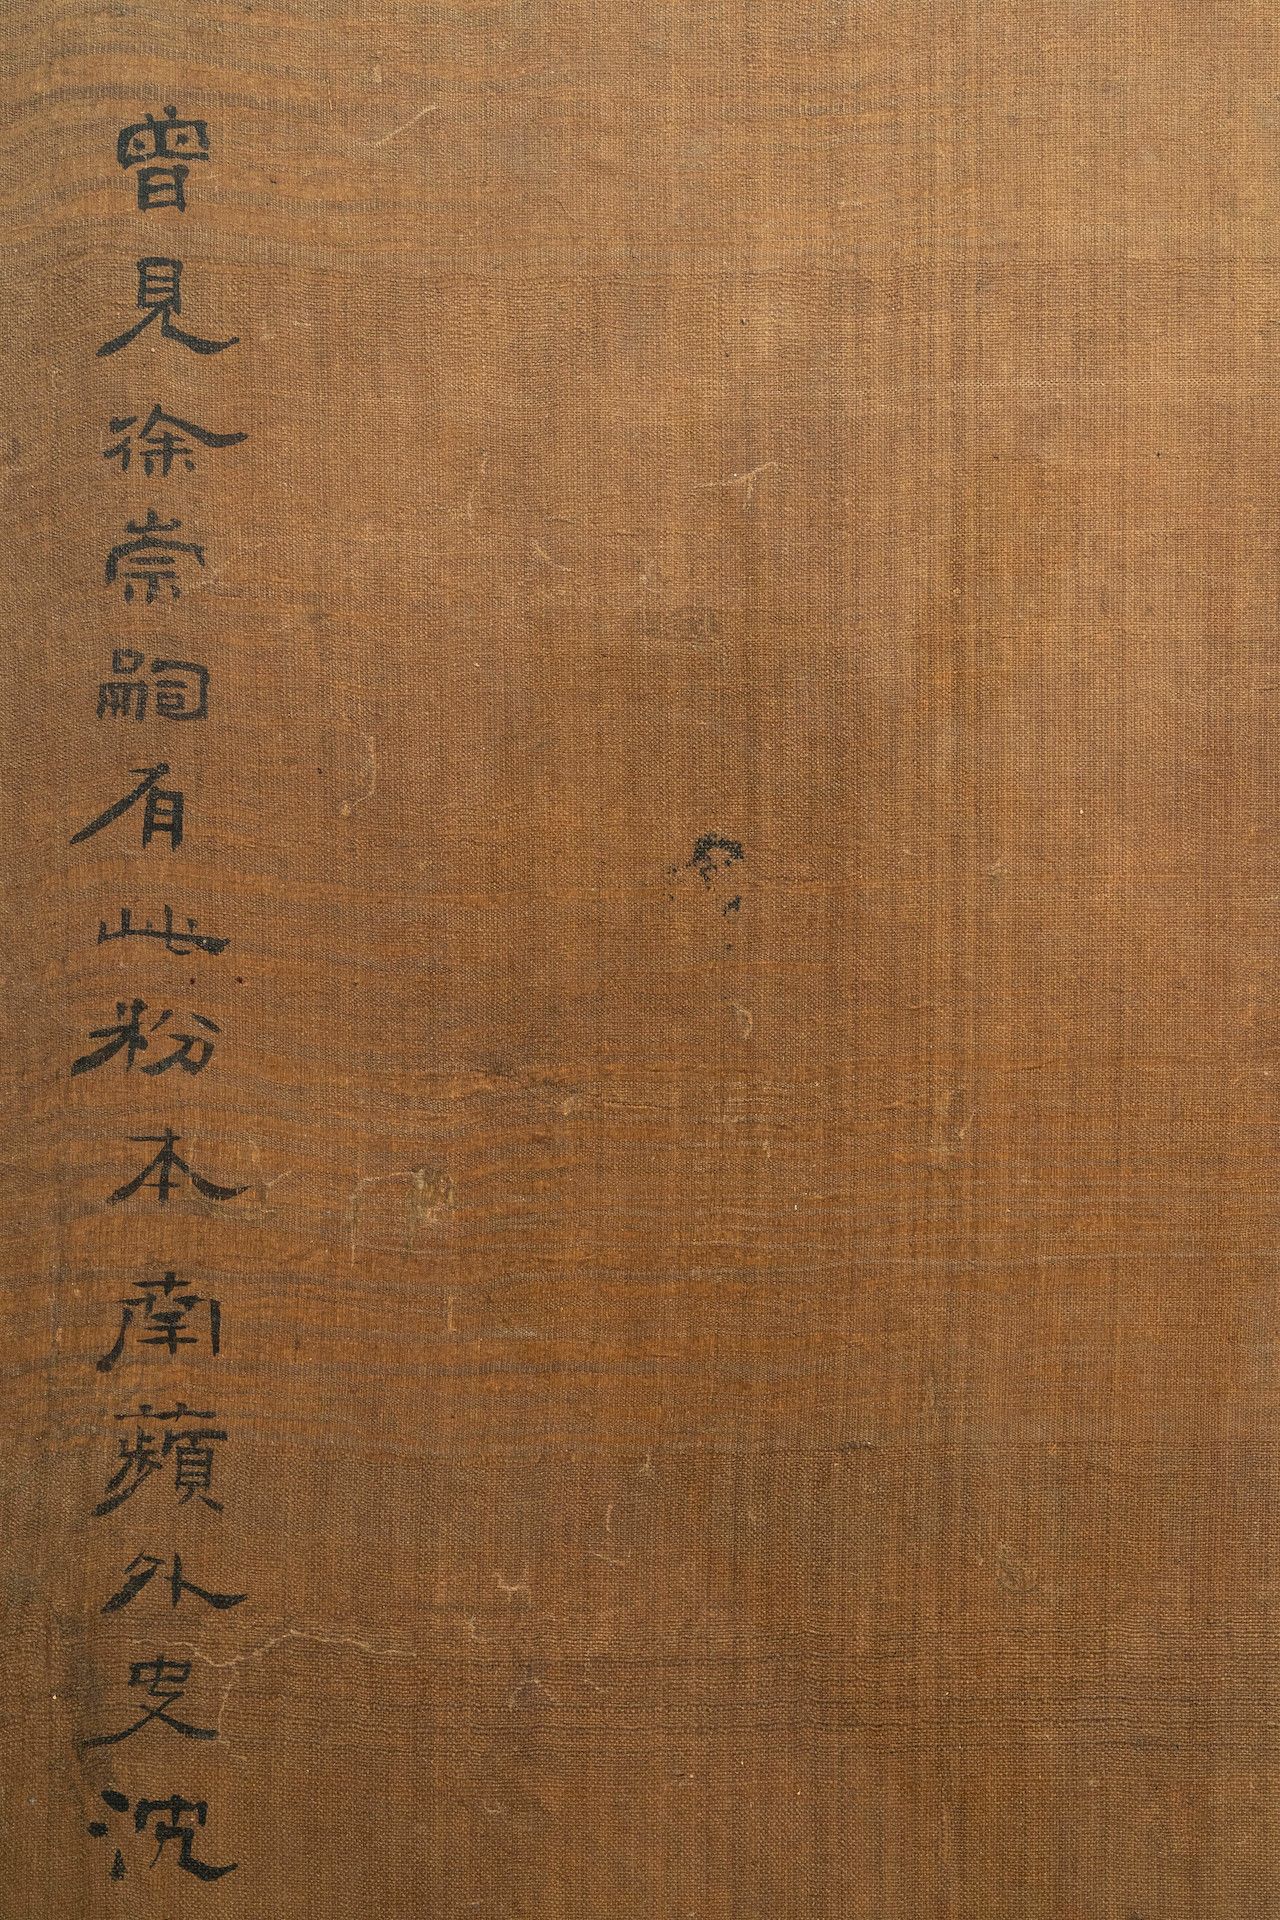 曾見徐崇嗣有此粉本南蘋外史沈